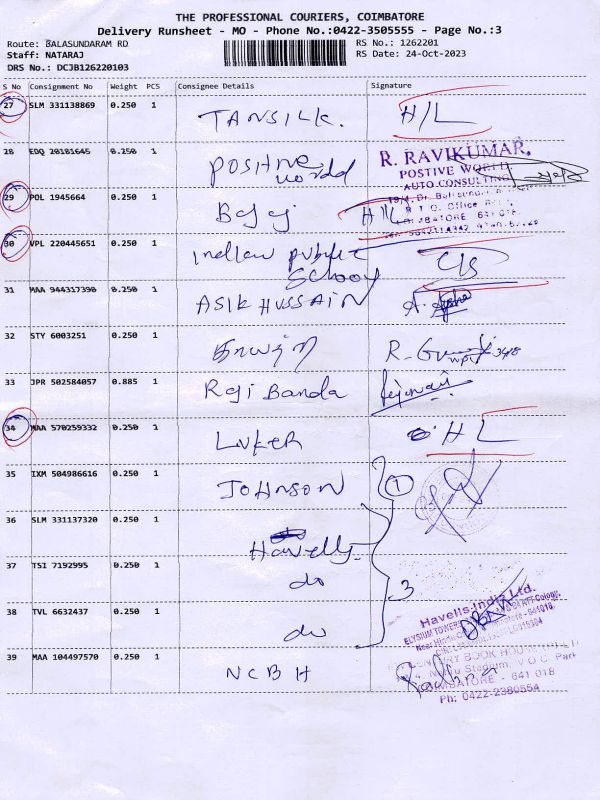 THE PROFESSIONAL COURIERS, COIMBATORE
Delivery Runsheet - MO - Phone No.:0422-3505555 - Page No.:3
Route: BALASUNDARAM RD RS No.: 1262201
Staff: NATARAJ RS Date: 24-Oct-2023
DRS No.: DCJB126220103
S No Consignment No Weight PCS Consignee Details Signature
27 SLM 331138869 0.250 1 TANSILK. H/L
28 EDQ 20181645 0.250 1 Positive world
R. RAVIKUMAR,
POSTIVE WORLD
AUTO CONSULTING
29 POL 1945664 0.250 1 Bajaj H/L
R.T.O. Office
COIMBATORE - 641 018.
30 VPL 220445651 0.250 1 Indian public School C/S
31 MAA 944317390 0.250 1 ASIK HUSSAIN
32 STY 6003251 0.250 1
33 JPR 502584057 0.885 1 Raji Banda
34 MAA 570259332 0.250 1 LUKER H L
35 IXM 504986616 0.250 1 JOHNSON 1
36 SLM 331137320 0.250 1 Havells
37 TSI 7192995 0.250 1 do 3
38 TVL 6632437 0.250 1 do
Havells India Ltd.
ELYSIUM TOWERS
39 MAA 104497570 0.250 1 NCBH Radha
BOOK HOUSE
Nehru Stadium, V.O.C. Park
COIMBATORE - 641 018
Ph: 0422-2380554